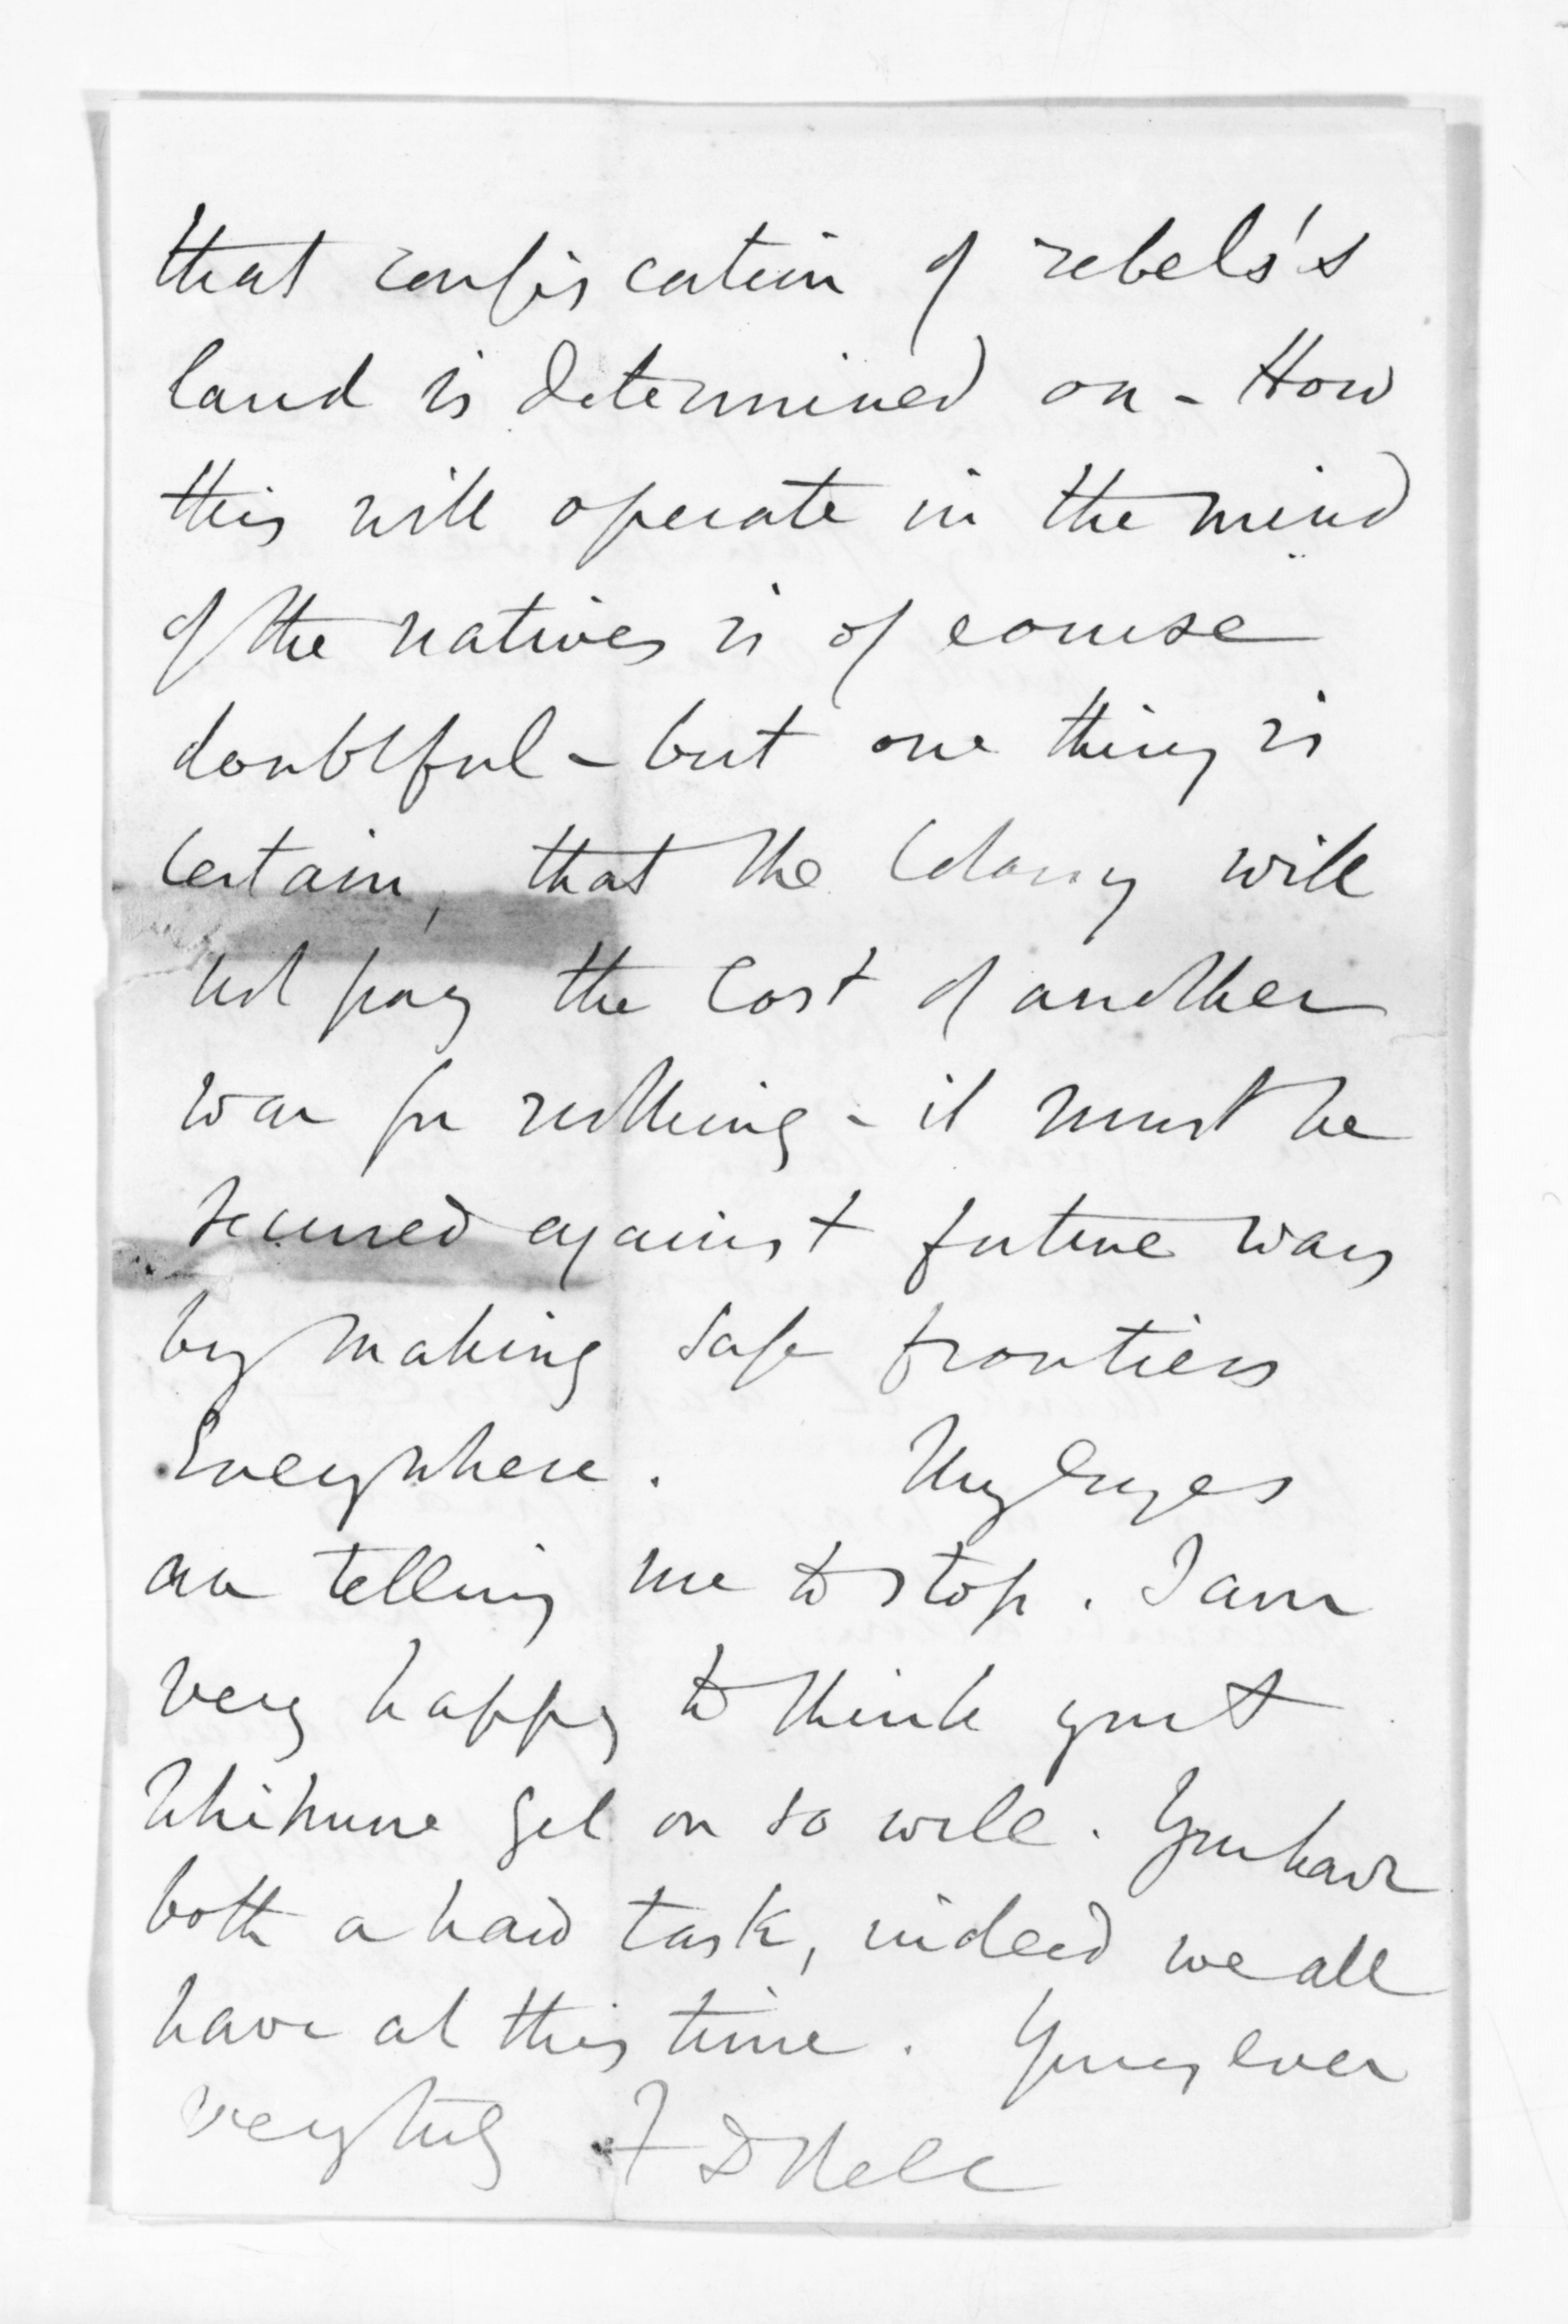 that confiscation of rebels's
land is determined on - How
this will operate in the mind
of the natives is of course
doubtful - but one thing is
certain, that the Colony will
not pay the cost of another
war for nothing - it must be
secured against future wars
by making safe frontiers
Everywhere. My eyes
are telling me to stop. I am
very happy to think you &
Whitmore get on so well. You have
both a hard task, indeed we all
have at this time. Yours ever
very truly F D Bell